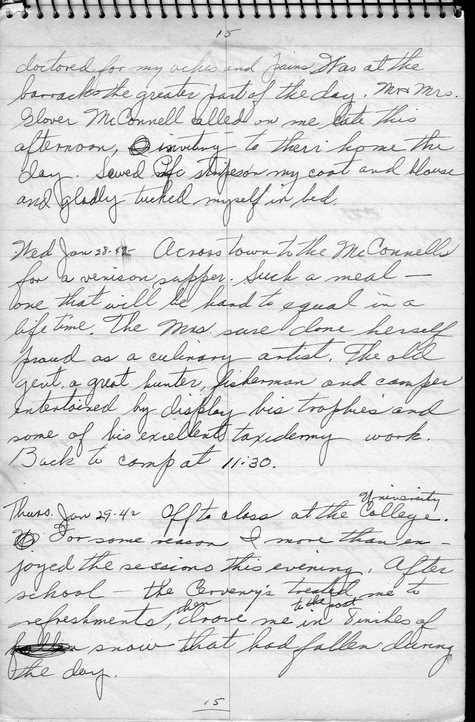 15
doctored for my aches and pains Was at the
barracks the greater part of the day. Mr & Mrs.
Glover McConnell called on me late this
afternoon, inviting to their home the
day. Sewed Pfc stripes on my coat and blouse
and gladly tucked myself in bed.
Wed Jan 28-42 Across town to the McConnells
for a venison supper. Such a meal —
one that will be hard to equal in a
life time. The Mrs sure done herself
proud as a culinary artist. The old
gent, a great hunter, fisherman and camper
entertained by display his trophies and
some of his excellent taxidermy work.
Back to camp at 11:30.
University
Thurs. Jan 29-42 Off to class at the College.
For some reason I more than en-
joyed the sessions this evening. After
school — the Cerveny's treated me to
then to the post
refreshments, drove me in 8 inches of
snow that had fallen during
the day.
15